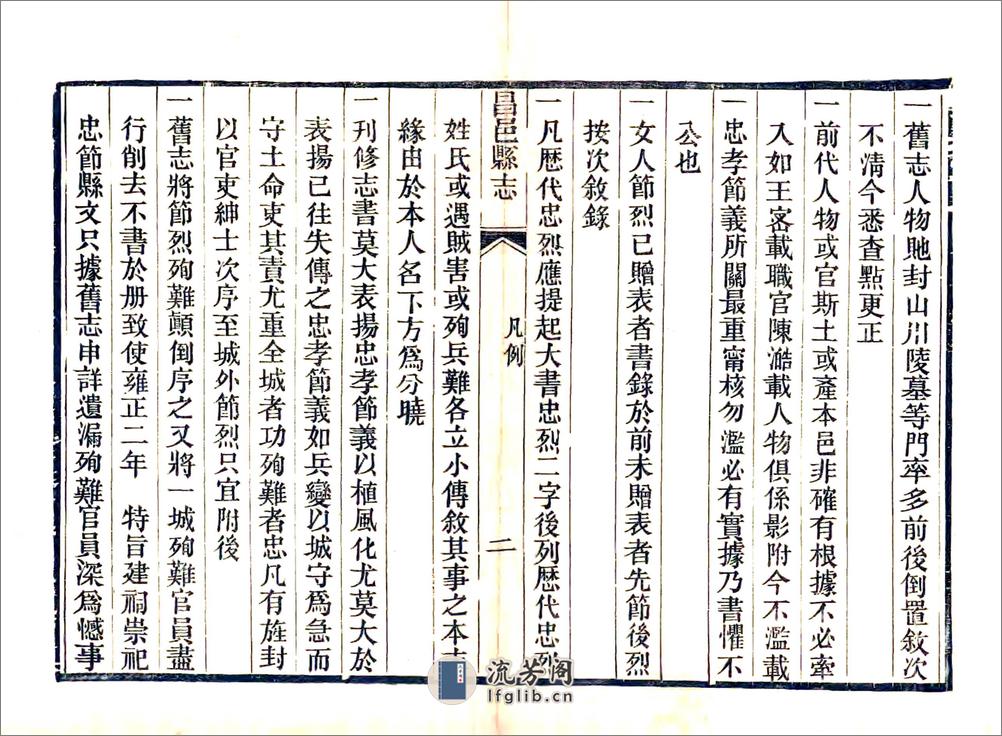 一舊志人物貤封山川陵墓等門率多前後倒置敘次
不淸今悉查點更正
一前代人物或官斯土或產本邑非確有根據不必牽
入如王宻載職官陳澔載人物俱係影附今不濫載
一忠孝節義所關最重甯核勿濫必有實據乃書懼不
公也
一女人節烈已贈表者書錄於前未贈表者先節後烈
按次敘錄
一凡歷代忠烈應提起大書忠烈二字後列歷代忠烈
昌邑縣志
凡例
二
姓氏或遇賊害或殉兵難各立小傳敘其事之本
緣由於本人名下方爲分曉
一刊修志書莫大表揚忠孝節義以植風化尤莫大於
表揚已往失傳之忠孝節義如兵變以城守爲急而
守土命吏其責尤重全城者功殉難者忠凡有旌封
以官吏紳士次序至城外節烈只宜附後
一舊志將節烈殉難顛倒序之又將一城殉難官員盡
行削去不書於册致使雍正二年 特旨建祠祟祀
忠節縣文只據舊志申詳遺漏殉難官員深爲憾事
流芳阁
lfglib.cn